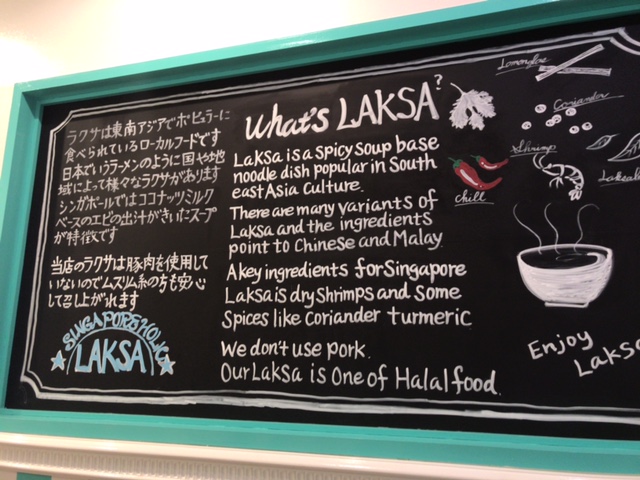 ラクサは東南アジアでポピュラーに
食べられているローカルフードです
日本でいうラーメンのように国や地
域によって様々なラクサがあります
シンガポールではココナッツミルク
ベースのエビの出汁がきいたスープ
が特徴です
当店のラクサは豚肉を使用して
いないのでムスリム系の方も安心
して召し上がれます
SINGAPORE HOLIC
LAKSA
What's LAKSA?
Laksa is a spicy soup base
noodle dish popular in South
east Asia Culture.
There are many variants of
Laksa and the ingredients
point to Chinese and Malay
A key ingredients for Singapore
Laksa is dry Shrimps and Some
Spices like Coriander turmeric
We don't use pork.
Our Laksa is One of Halal food.
Lemonglas
Coriander
Shrimp
chill
Enjoy
Laksa